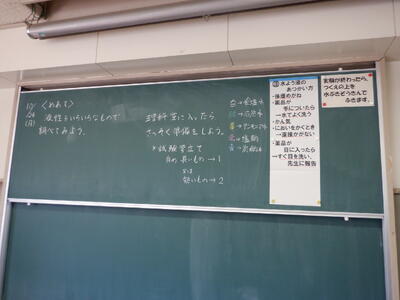 <めあて>
液性をいろいろなもので
調べてみよう。
理科室に入ったら
さっそく準備をしよう。
試験管立て
長いもの→1
短いもの→2
水よう液の
あつかい方
・保護めがね
・薬品が
手についたら
→水でよく洗う
・かん気
・においをかぐとき
→直接かがない
・薬品が
目に入ったら
→すぐ目を洗い、
先生に報告
実験が終わったら、
つくえの上を
水ぶきぞうきんで
ふきます。